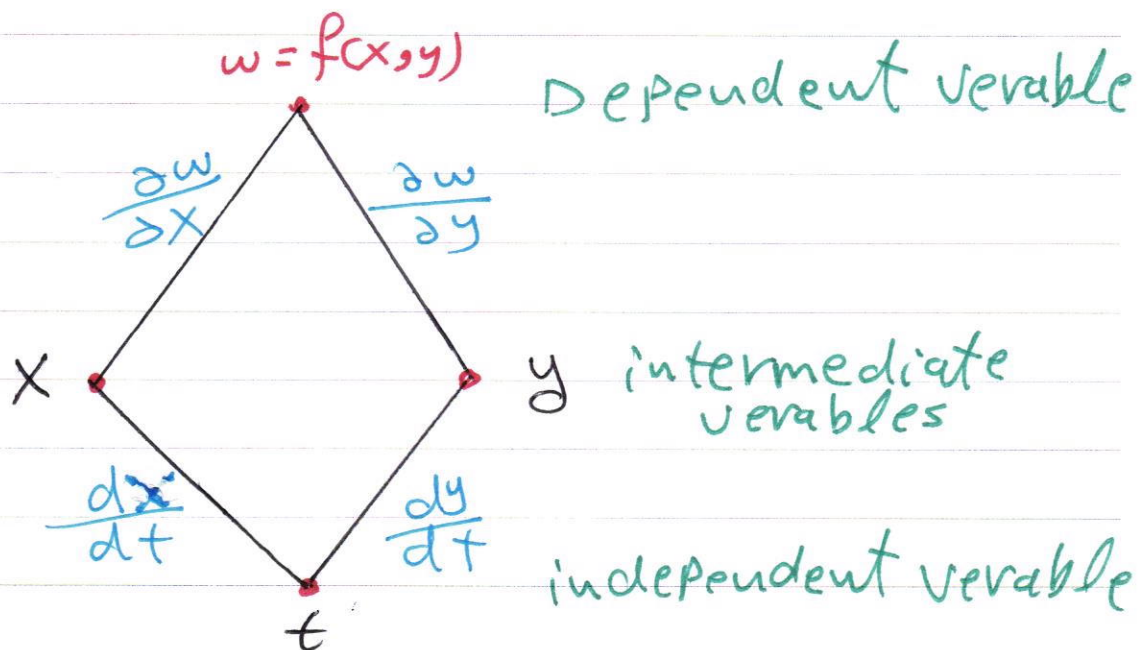 w = f(x,y)
Dependent verable
∂w/∂x
∂w/∂y
x
y
intermediate
verables
dx/dt
dy/dt
independent verable
t